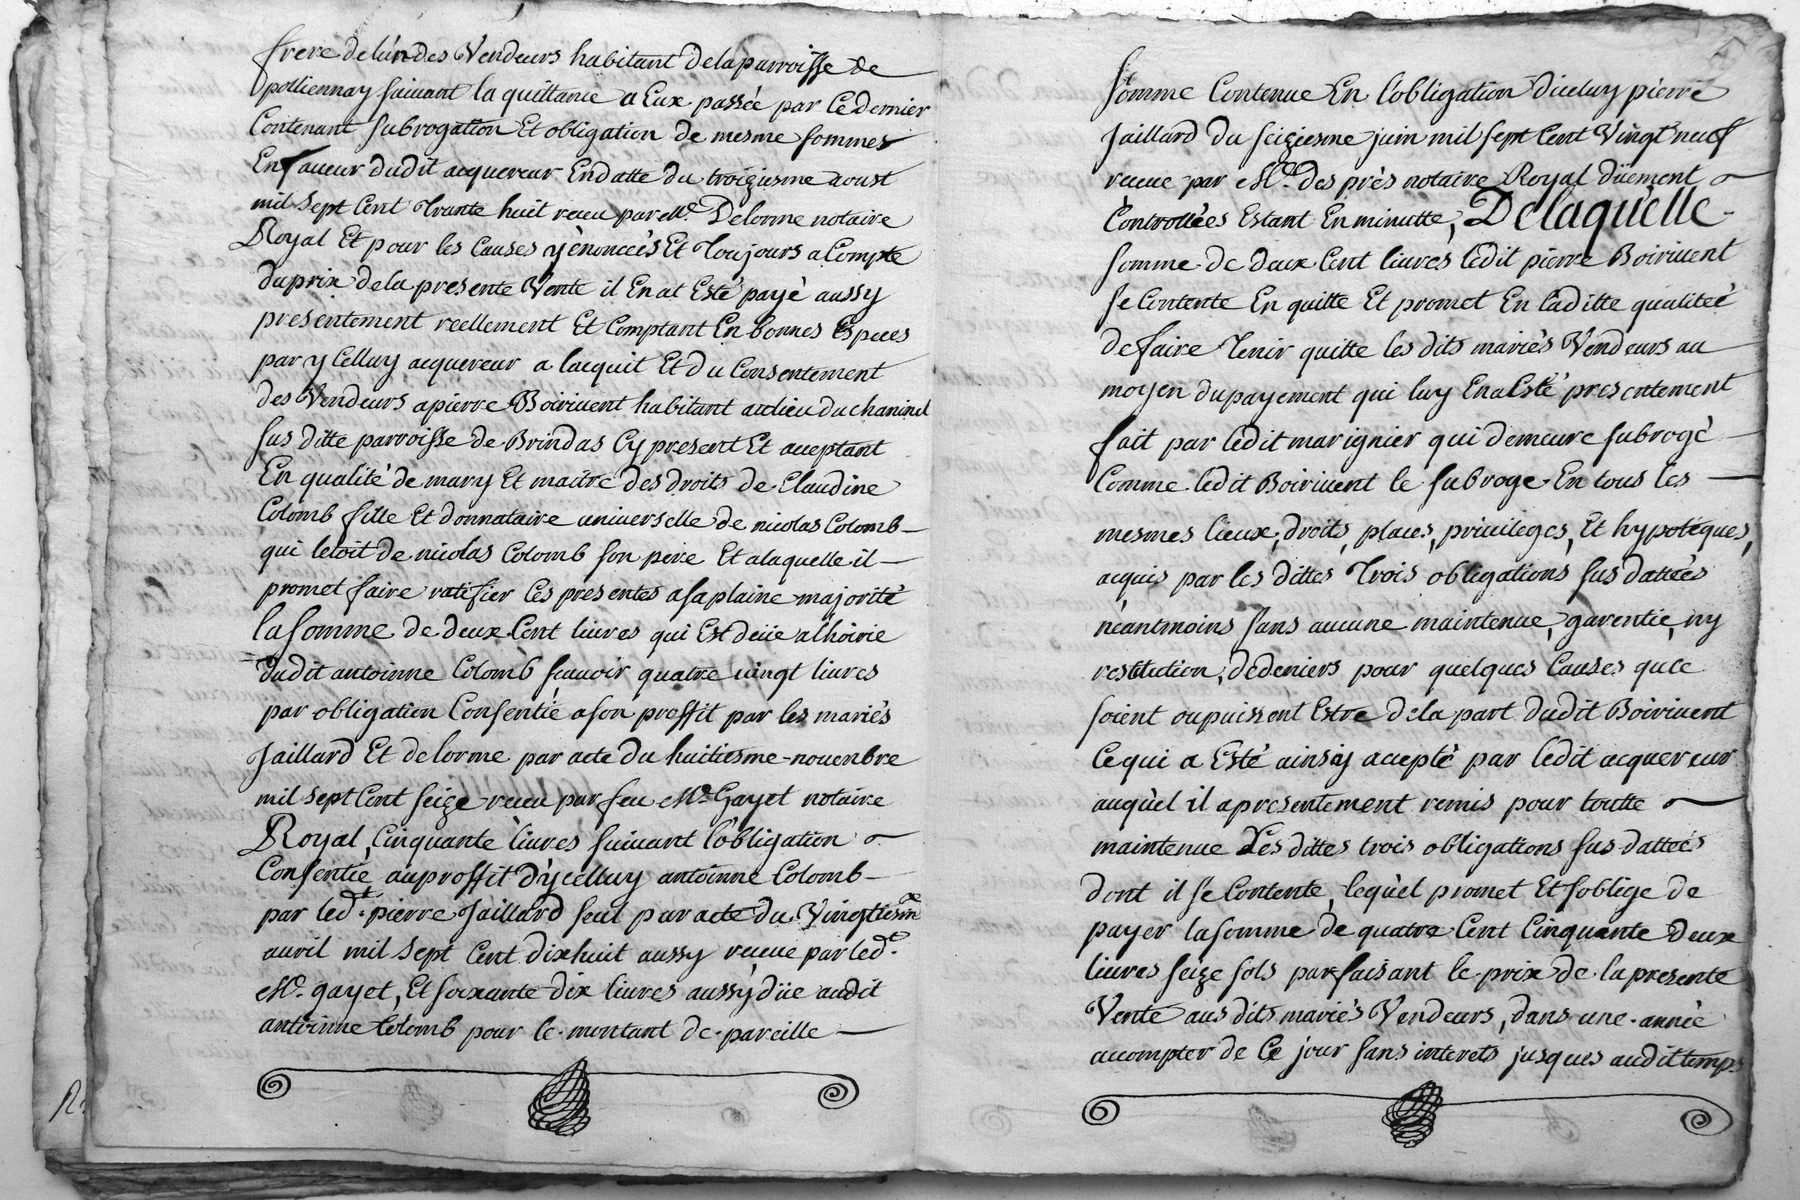 frere de lún des Vendeurs habitant dela parroisse de
polliennay suivant la quittance a Eux passée par Ce dernier
Contenant subrogation Et obligation de mesme sommes
En faveur dudit acquereur Endatte du troiziesme aoust
mil sept Cent Trante huit receu par Me. Delorme notaire
Royal Et pour les Causes y énoncées Et Toujours a Compte
du prix dela presente Vente il En at Esté payé aussy
presentement reellement Et Comptant En bonnes Especes
par y Celluy acquereur a lacquit Et du Consentement
des Vendeurs a pierre Boirivent habitant au lieu du chaninel
sus ditte parroisse de Brindas Cy present Et acceptant
En qualité de mary Et maitre des droits de Claudine
Colomb fille Et donnataire universelle de nicolas Colomb
qui letoit de nicolas Colomb son pere Et a laquelle il
promet faire ratifier Ces presentes a sa plaine majorité
la somme de deux Cent livres qui Est deüe a lhoirie
dudit antoinne Colomb scavoir quatre vingt livres
par obligation Consentie a son proffit par les mariés
Jaillard Et delorme par acte du huitiesme novenbre
mil sept Cent seize receu par feu Me. Gayet notaire
Royal, Cinquante livres suivant lobligation
Consentie au proffit d'ycelluy antoinne Colomb
par ledt. pierre Jaillard seul par acte du Vingtiesme
avril mil sept Cent dixhuit aussy receue par ledt.
Me. gayet, Et soixante dix livres aussy düe audit
antoinne Colomb pour le montant de pareille
somme Contenue En lobligation diceluy pierre
Jaillard du seiziesme juin mil sept Cent Vingt neuf
receue par Me. des près notaire Royal düement
Controllées Estant En minutte, De laquelle
somme de deux Cent livres ledit pierre Boirivent
se Contente En quitte Et promet En laditte qualitée
de faire Tenir quitte les dits mariés Vendeurs au
moyen du payement qui luy En a Esté presentement
fait par ledit marignier qui demeure subrogé
Comme ledit Boirivent le subroge En tous les
mesmes lieux, droits, places, privileges, Et hypoteques,
acquis par les dittes Trois obligations sus dattées
néantmoins sans aucune maintenue, garentie, ny
restitution, de deniers pour quelques Causes que Ce
soient ou puissent Estre dela part dudit Boirivent
Ce qui a Esté ainsiy accepté par ledit acquereur
auquel il a presentement remis pour toutte
maintenue Les dittes trois obligations sus dattées
dont il se Contente, lequel promet Et soblige de
payer la somme de quatre Cent Cinquante deux
livres seize sols parfaisant le prix de la presente
Vente aus dits mariés Vendeurs, dans une année
a compter de Ce jour sans interets jusques audit temps